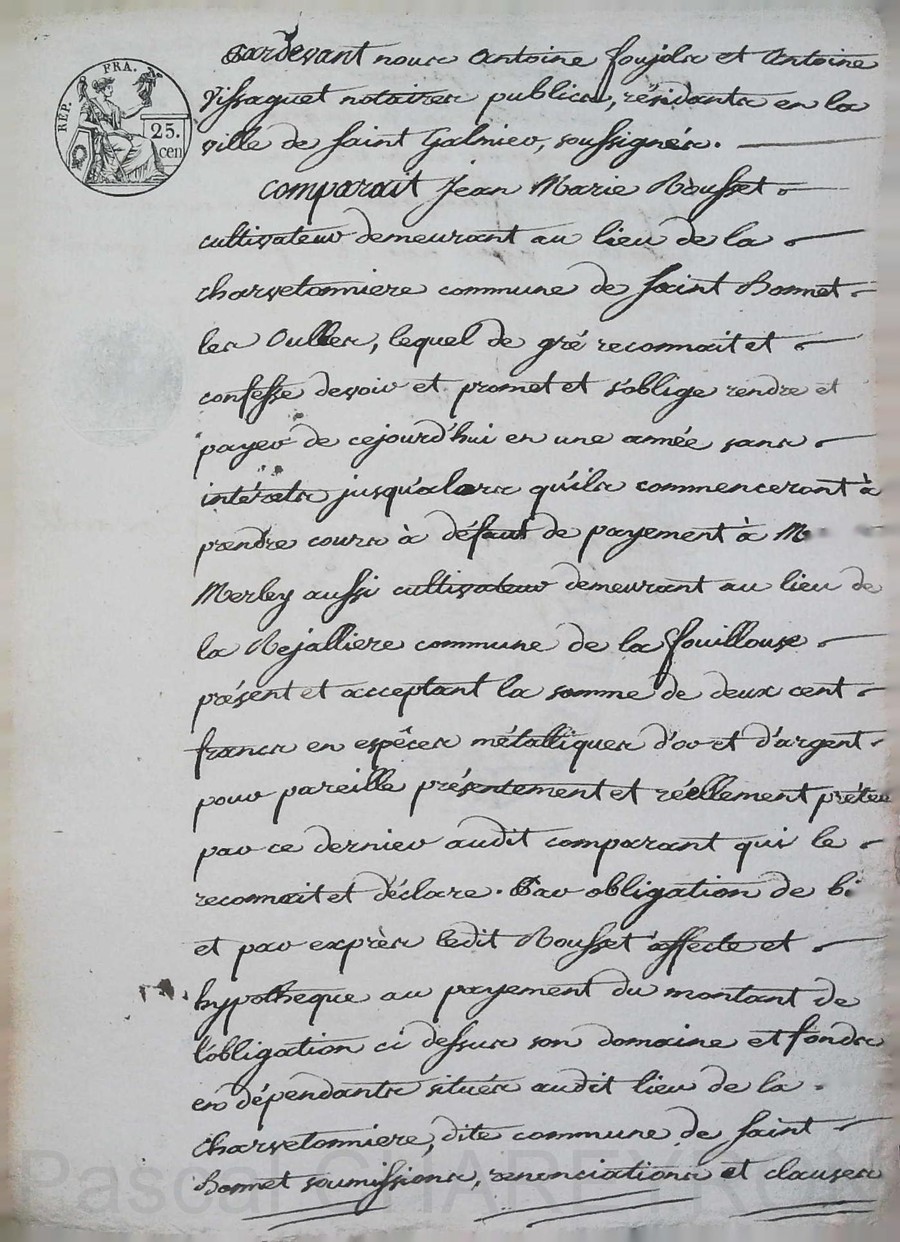 REP. FRA.
25.
cen
Pardevant nous Antoine Foujols et Antoine
Vissaguet notaires publics, résidants en la
ville de Saint Galmier, soussignés.
Comparait Jean Marie Rousset
cultivateur demeurant au lieu de la
charvetonniere commune de Saint Bonnet
les Oulles, lequel de gré reconnait et
confesse devoir et promet et s'oblige rendre et
payer de cejourd'hui en une année sans
intérêts jusqu'alors qu'ils commenceront à
prendre cours à défaut de payement à
Merley aussi cultivateur demeurant au lieu de
la Rejalliere commune de la fouillouse
présent et acceptant la somme de deux cent
francs en espêces métalliques d'or et d'argent
pour pareille présentement et réellement prêtée
par ce dernier audit comparant qui le
reconnait et déclare. Par obligation de
et par exprès ledit Rousset affecte et
hypotheque au payement du montant de
l'obligation ci dessus son domaine et fonds
en dépendants situés audit lieu de la
Charvetonniere, dite commune de Saint
Bonnet soumissions, renonciations et clauses
Pascal CHAREYRON